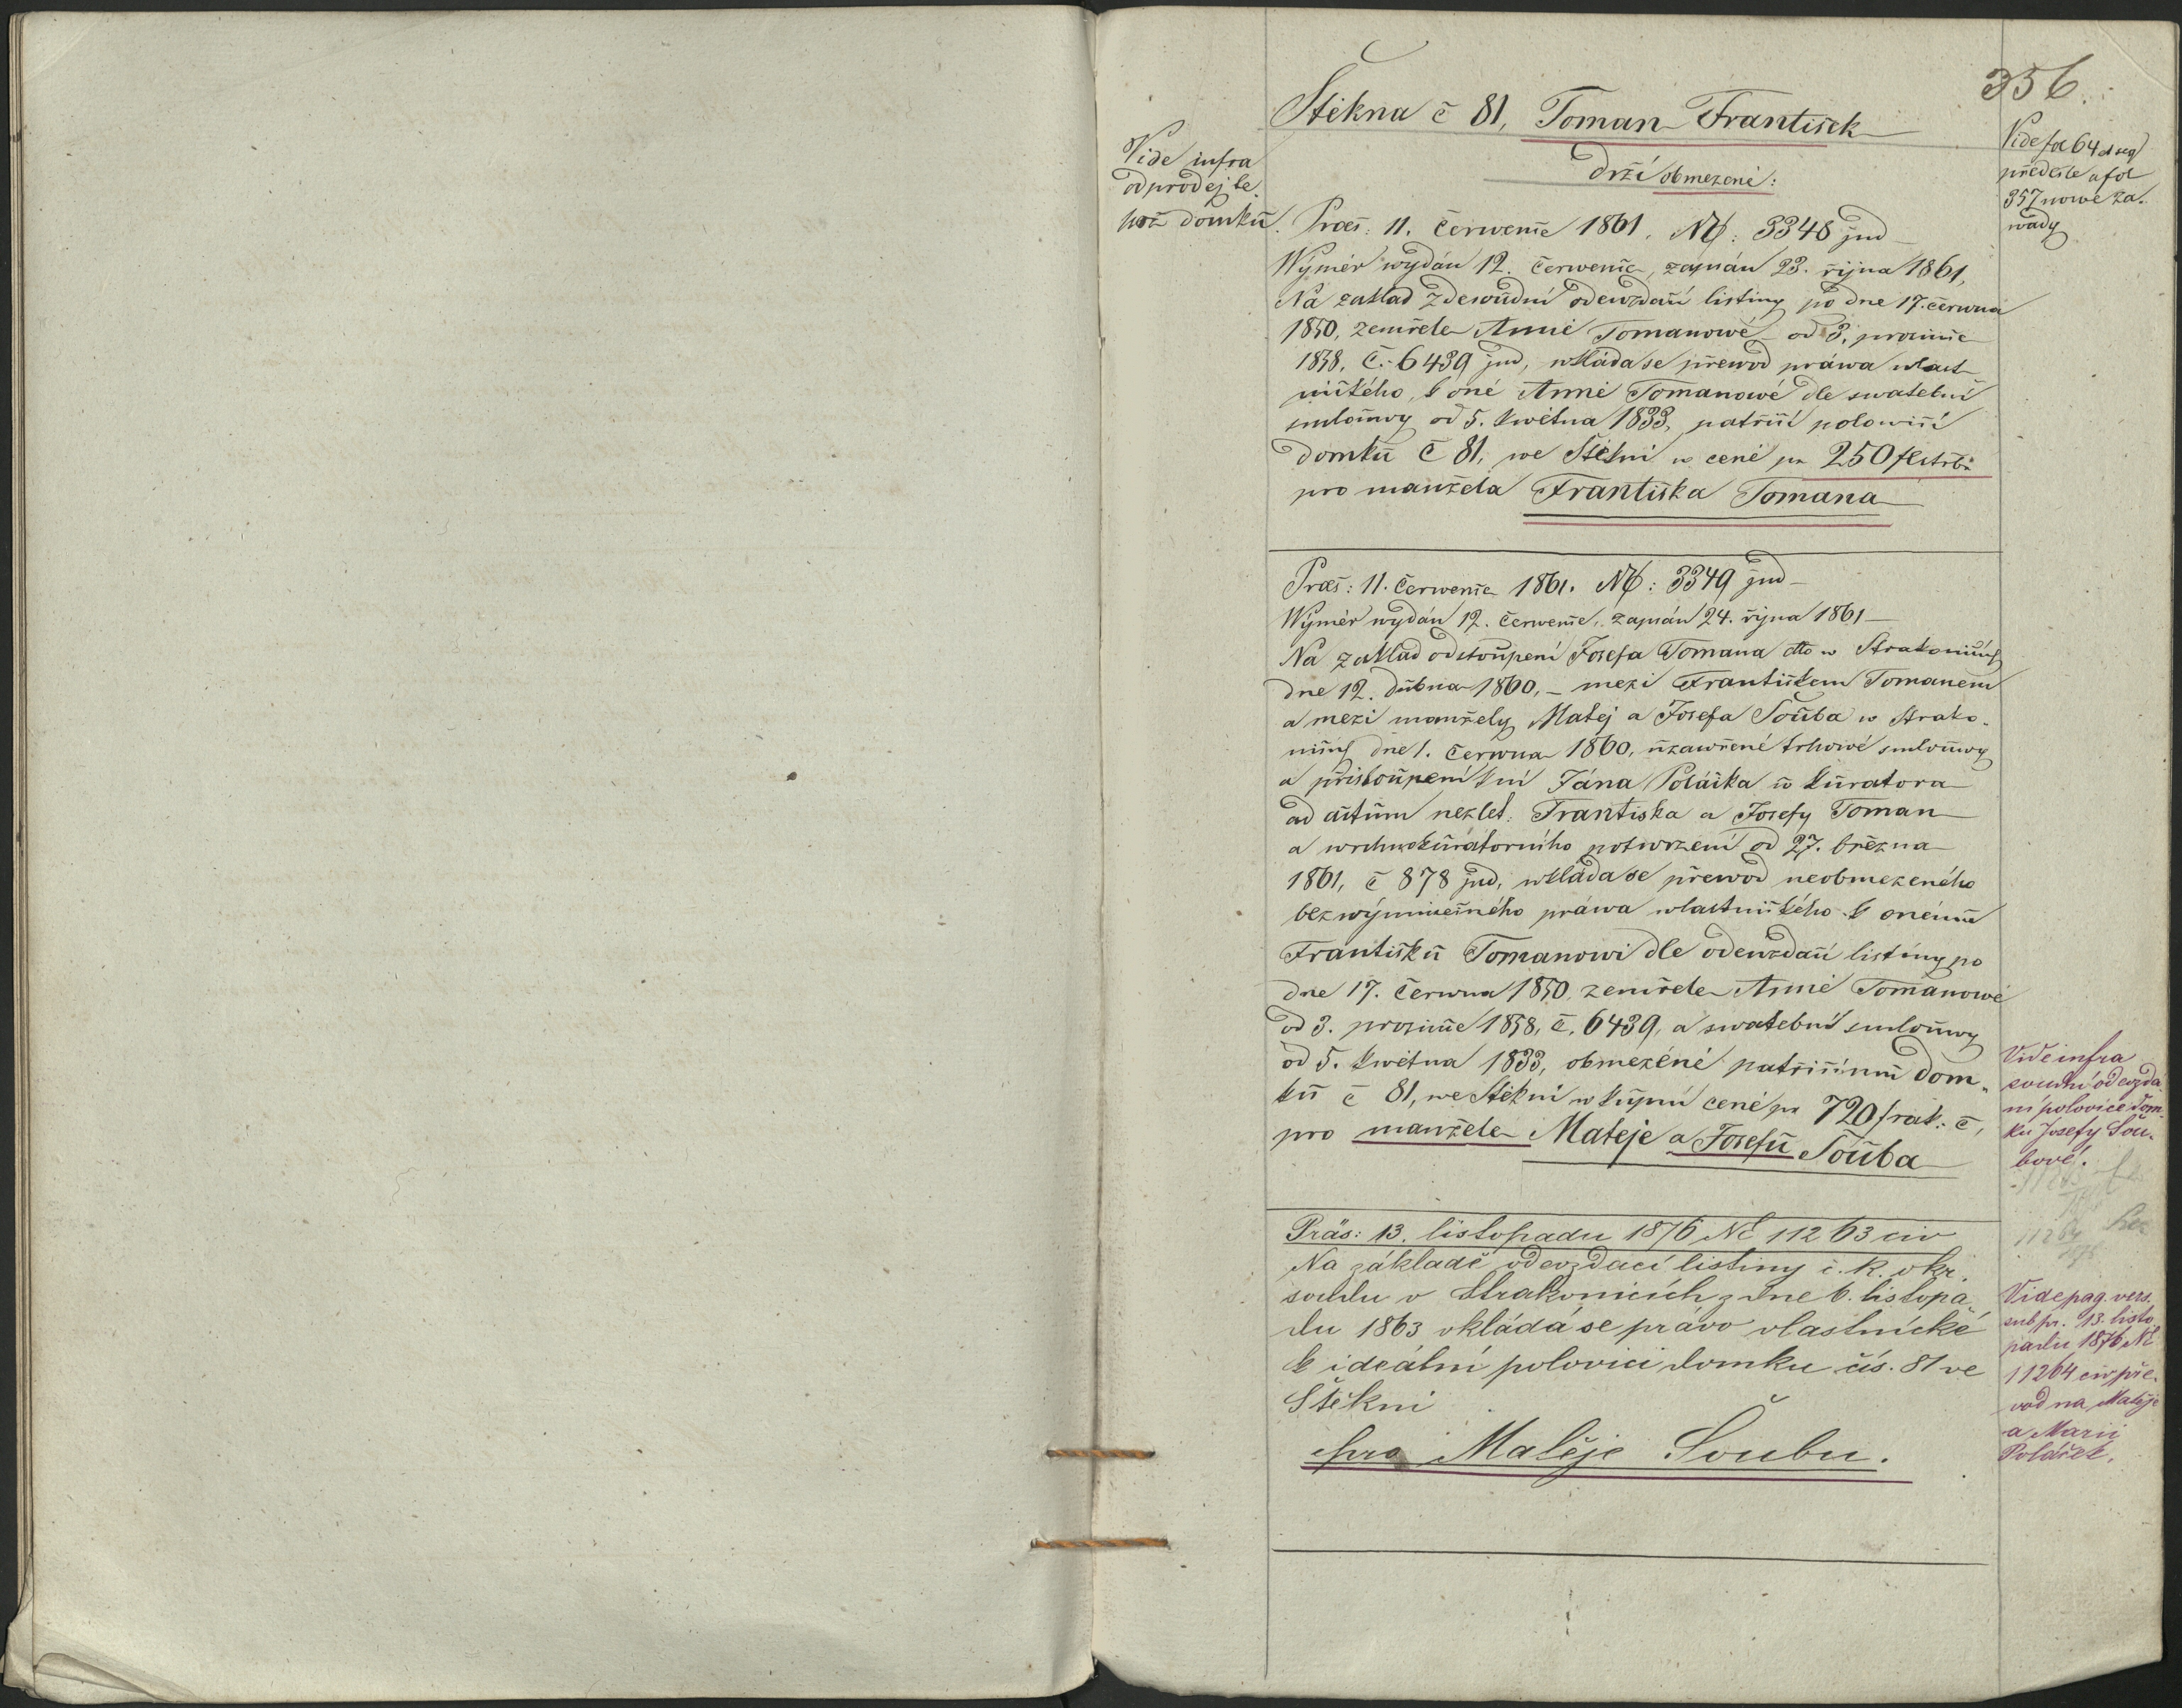 356.
Štěkna č 81, Toman František
drží obmezeně:
Vide infra
odprodej te-
hož domku.
Vide fol 64 et seq
předešle a fol
357 nowé za-
wady
Praes: 11. červenče 1861. NE: 3348 jud
Wýměr wydán 12. červenče, zapsán 23. řijna 1861,
Na zaklad zdesoudní odewzdací listiny po dne 17. června
1850, zemřele Anně Tomanowé od 3. prosince
1858, č. 6439 jud, wkláda se převod práwa wlast-
nického, k oné Anně Tomanowé dle swatební
smlouwy od 5. kwětna 1833, patřící polowicí
domku č 81, we Štěkni w ceně pr 250 f
pro manžela Františka Tomana
Praes: 11. červenče 1861. NE: 3349 jud
Wýměr wydán 12. červenče, zapsán 24. řijna 1861
Na zaklad odstoupení Josefa Tomana dto w Strakonicích
dne 12. dubna 1860, – mezi Františkem Tomanem
a mezi manžely Matěj a Josefa Šouba w Strako-
nicích dne 1. června 1860, uzawřené trhowé smlouwy
a přistoupení k ní Jána Poláčka co kuratora
ad actum nezlet. Františka a Josefy Toman
a wrchnokurátorního potwrzení od 27. března
1861, č 878 jud, wkláda se přewod neobmezeného
bezwýminečného práwa wlastnického k onému
Františku Tomanowi dle odewzdací listiny po
dne 17. června 1850, zemřele Anně Tomanowé
od 3. prosince 1858, č. 6439, a swatební smlouwy
od 5. kwětna 1833, obmezéně patřicímu dom-
ku č 81, we Štěkni w kupní ceně pr 720 f rak. č,
pro manžele Matěje a Josefu Šouba
Vide infra
soudní odevzda-
ní polovice dom-
ku Josefy Šou-
bové.
11264
Präs: 13. listopadu 1876 NE 11263 civ
Na základě odevzdací listiny c. k. okr.
soudu v Strakonicích z dne 6. listopa-
du 1863 vkládá se právo vlastnické
k ideální polovici domku čís. 81 ve
Štěkni
pro Matěje Šoubu.
Vide pag. vers.
sub pr. 13. listo-
padu 1876 NE
11264 civ pře-
vod na Matěje
a Marii
Poláček.